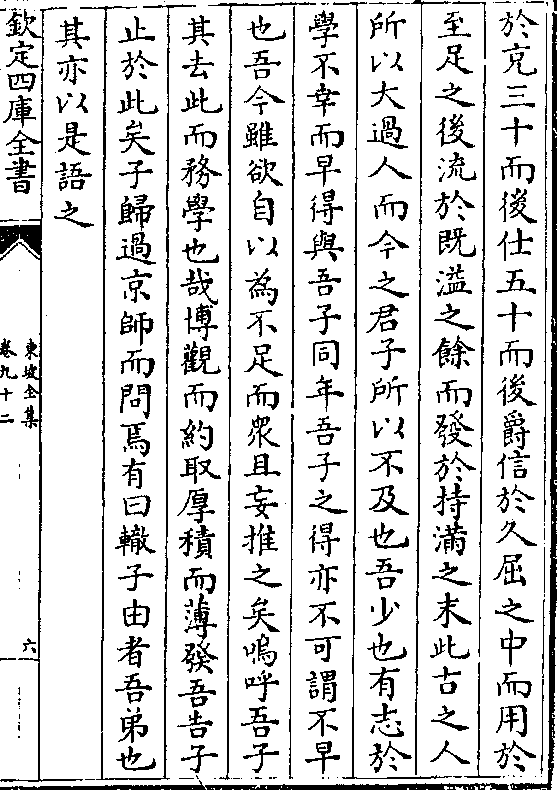 於充三十而後仕五十而後爵信於久屈之中而用於
至足之後流於既溢之餘而發於持滿之末此古之人
所以大過人而今之君子所以不及也吾少也有志於
學不幸而早得與吾子同年吾子之得亦不可謂不早
也吾今雖欲自以為不足而衆且妄推之矣嗚呼吾子
其去此而務學也哉博觀而約取厚積而薄發吾告子
止於此矣子歸過京師而問焉有曰轍子由者吾弟也
其亦以是語之
欽定四庫全書
東坡全集
卷九十二
六